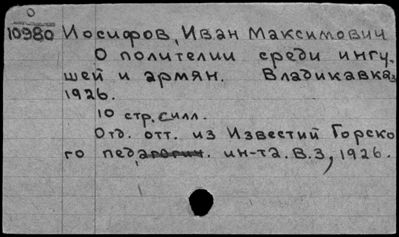 О
10980 Иосифов, Иван Максимович
О полителии среди ингу-
шей и армян. Владикавказ
1926.
10 стр. с илл.
Отд. отт. из Известий Горско
го педагогич. ин-та. В.3, 1926.